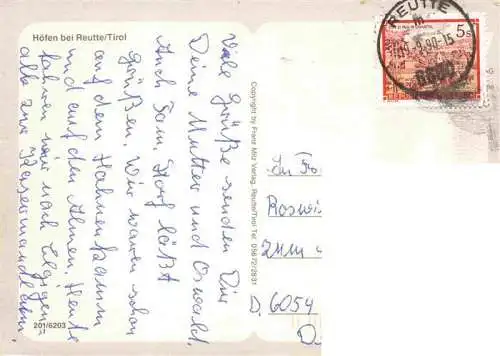 Höfen bei Reutte/Tirol
Viele Grüße senden Dir
Deine Mutter und Oswald.
Auch Fam. Storf läßt
grüßen. Wir waren schon
auf dem Hahnenkamm
und auf den Almen. Heute
fahren wir nach
alle zur
201/6203
Copyright by Franz Milz Verlag, Reutte/Tirol Tel. 05672/2831
REUTTE
5s
6600
Roswi
D. 6054